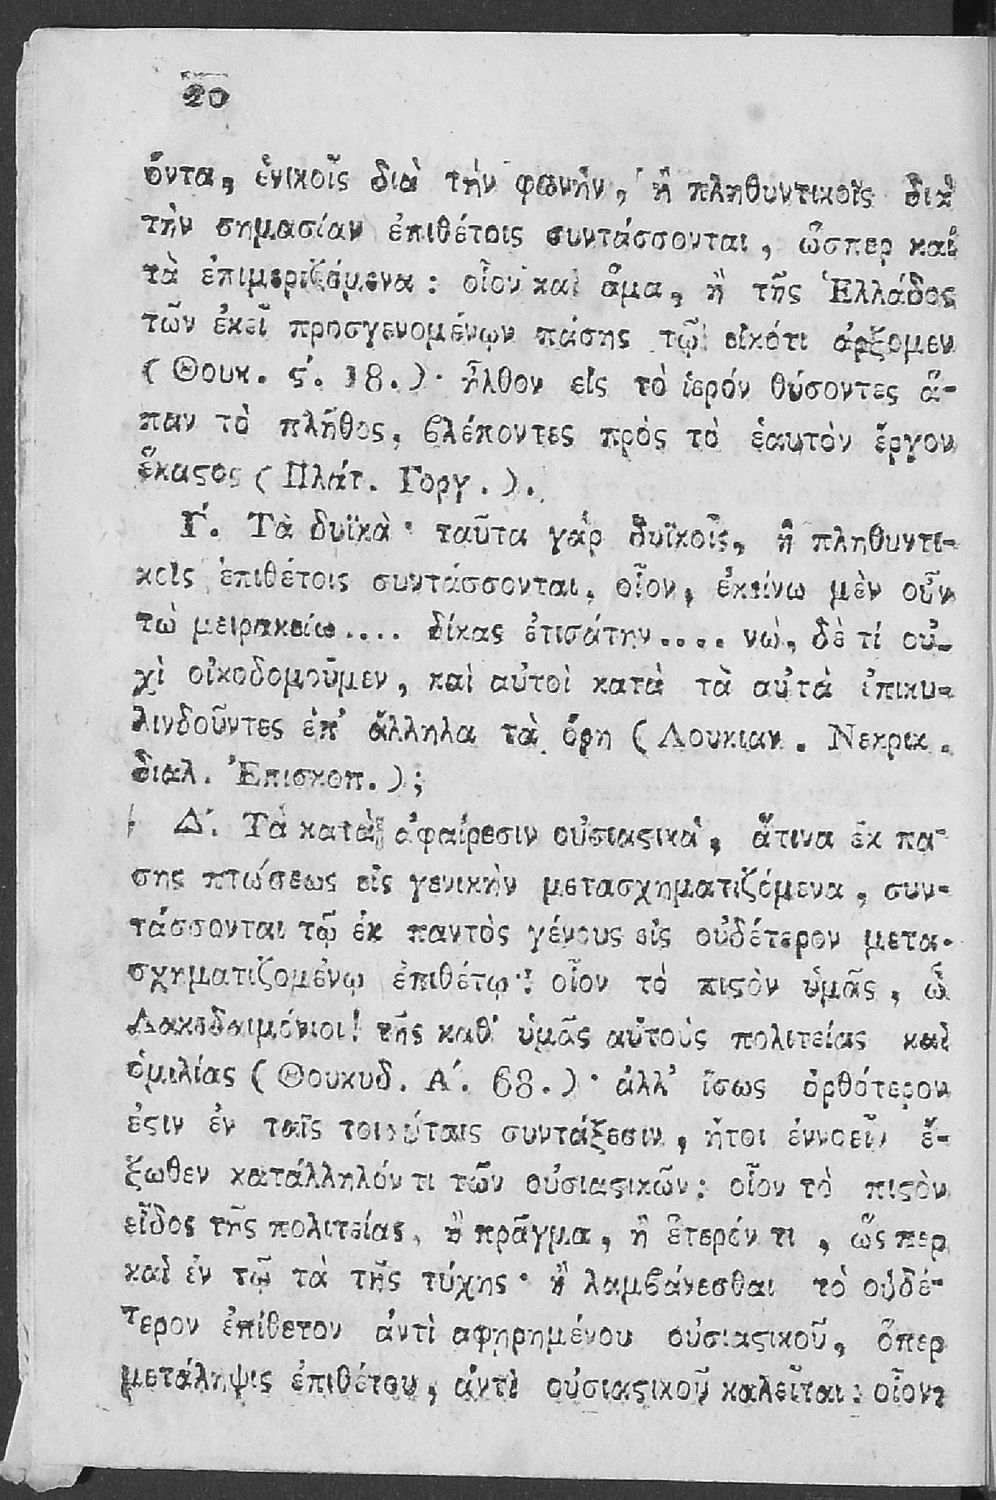 20
ὄντα, ἑνικοῖς διὰ τὴν φωνὴν, ἢ πληθυντικοῖς διὰ
τὴν σημασίαν ἐπιθέτοις συντάσσονται, ὥσπερ καὶ
τὰ ἐπιμεριζόμενα: οἷον καὶ ἅμα, ἢ τῆς Ἑλλάδος
τῶν ἐκεῖ προσγενομένων πάσης τῷ εἰκότι ἄρξομεν
(Θουκ. ϛ'. 18.)· ἦλθον εἰς τὸ ἱερόν θύσοντες ἅ-
παν τὸ πλῆθος, βλέποντες πρὸς τὸ ἑαυτὸν ἔργον
ἕκαϛος (Πλάτ. Γοργ.).
Γ'. Τὰ δυϊκὰ· ταῦτα γὰρ δυϊκοῖς, ἢ πληθυντι-
κοῖς ἐπιθέτοις συντάσσονται, οἷον, ἐκείνω μὲν οὖν
τὼ μειρακείω.... δίκας ἐτισάτην.... νὼ, δὲ τί οὐ-
χὶ οἰκοδομοῦμεν, καὶ αὐτοὶ κατὰ τὰ αὐτὰ ἐπικυ-
λινδοῦντες ἐπ' ἄλληλα τὰ ὄρη (Λουκιαν. Νεκρικ.
διαλ. Ἐπισκοπ.);
Δ'. Τὰ κατὰ ἀφαίρεσιν οὐσιαϛικὰ, ἅτινα ἐκ πά-
σης πτώσεως εἰς γενικὴν μετασχηματιζόμενα, συν-
τάσσονται τῷ ἐκ παντὸς γένους εἰς οὐδέτερον μετα-
σχηματιζομένῳ ἐπιθέτῳ· οἷον τὸ πιϛὸν ὑμᾶς, ὦ
Λακεδαιμόνιοι! τῆς καθ' ὑμᾶς αὐτοὺς πολιτείας καὶ
ὁμιλίας (Θουκυδ. Α'. 68.)· ἀλλ' ἴσως ὀρθότερον
ἐϛιν ἐν ταῖς τοιαύταις συντάξεσιν, ἤτοι ἐννοεῖν ἔ-
ξωθεν κατάλληλόν τι τῶν οὐσιαϛικῶν: οἷον τὸ πιϛὸν
εἶδος τῆς πολιτείας, ἢ πρᾶγμα, ἢ ἕτερόν τι, ὥς περ
καὶ ἐν τῷ τὰ τῆς τύχης· ἢ λαμβάνεσθαι τὸ οὐδέ-
τερον ἐπίθετον ἀντὶ αφηρημένου οὐσιαϛικοῦ, ὅπερ
μετάληψις ἐπιθέτου, ἀντὶ οὐσιαϛικοῦ καλεῖται: οἷον,